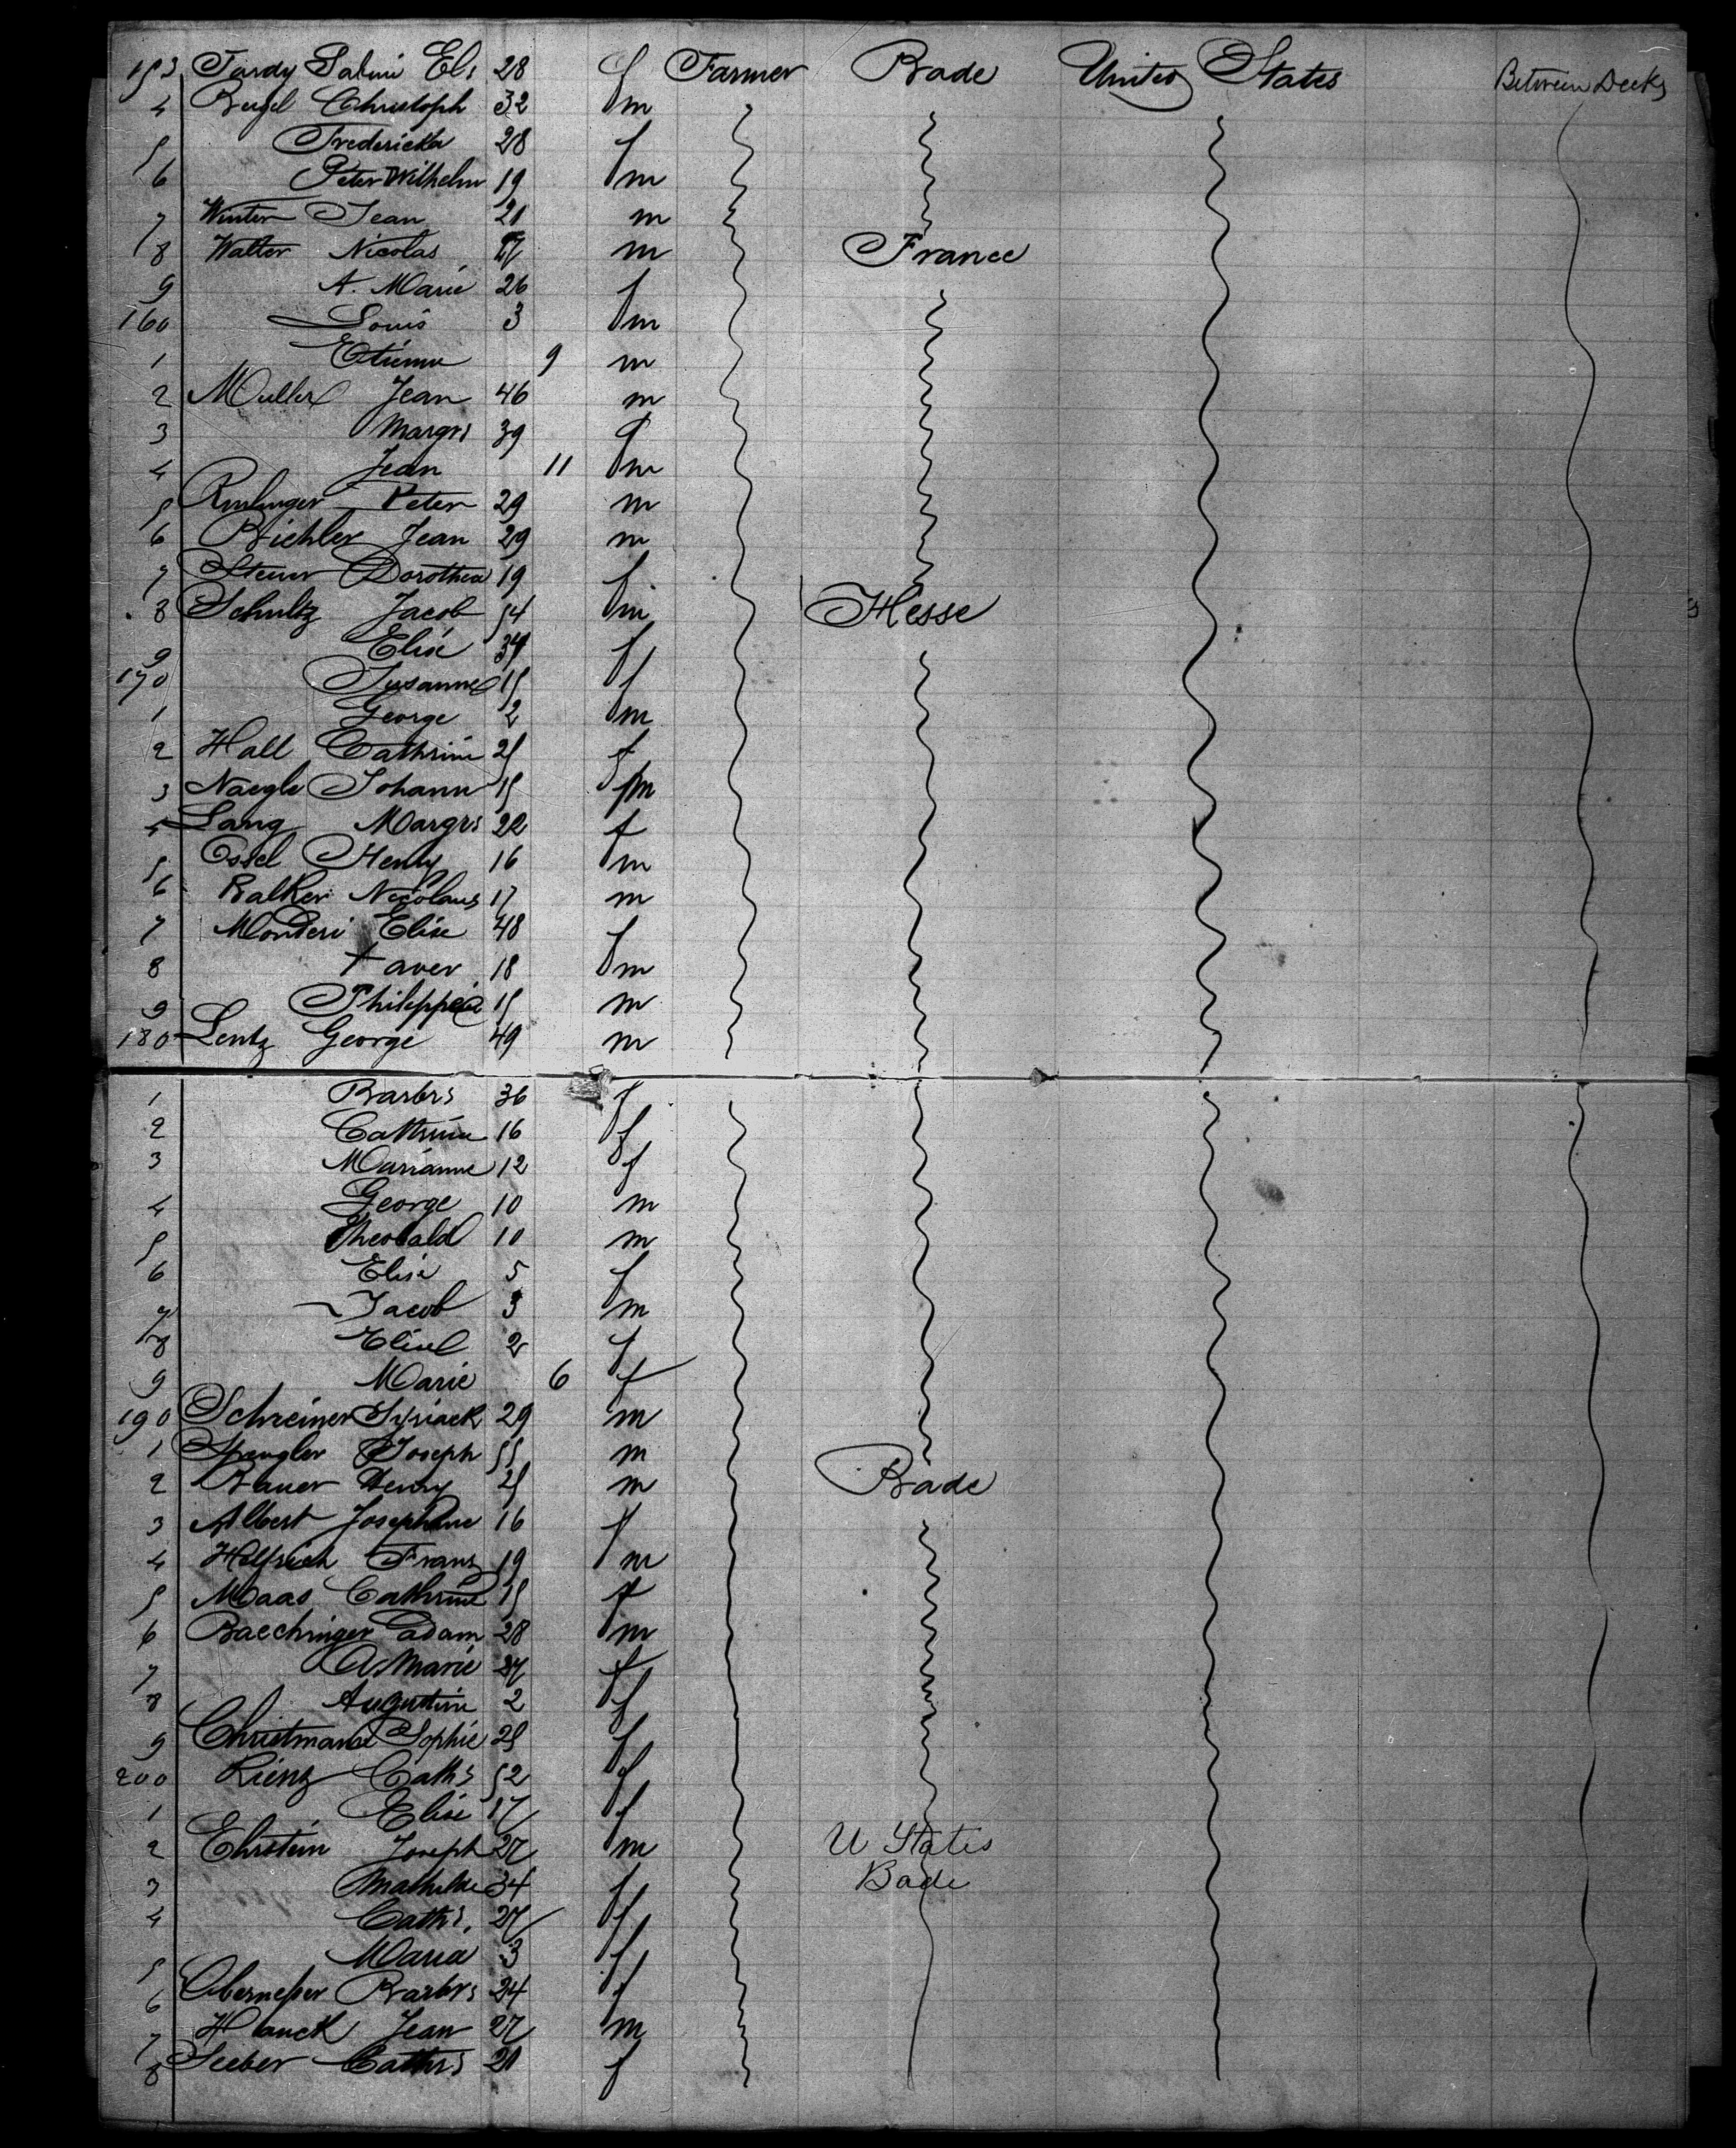 153 Tardy Salmi Els 28 f Farmer Bade United States Between Decks
4 Beigel Christoph 32 m
5 Fredericka 28 f
6 Peter Wilhelm 19 m
7 Winter Jean 21 m
8 Walter Nicolas 27 m France
9 A. Marie 26 f
160 Louis 3 m
1 Etienne 9 m
2 Muller Jean 46 m
3 Margrs 39 f
4 Jean 11 m
5 Peter 29 m
6 Bichler Jean 29 m
7 Steuer Dorothea 19 f
8 Schultz Jacob 54 m Hesse
9 Elise 39 f
170 Susanne 15 f
1 George 2 m
2 Hall Cathrine 25 f
3 Naegle Johann 15 m
4 Lang Margrs 22 f
5 Ossel Henry 16 m
6 Balker Nicolaus 17 m
7 Monderi Elise 48 f
8 Xaver 18 m
9 Philippe 15 m
180 Lentz George 49 m
1 Barbrs 36 f
2 Cathrine 16 f
3 Marianne 12 f
4 George 10 m
5 Theobald 10 m
6 Elise 5 f
7 Jacob 3 m
8 2 f
9 Marie 6 f
190 Schreiner Syriack 29 m
1 Spengler Joseph 55 m
2 Bauer Henry 25 m Bade
3 Albert Josephine 16 f
4 Helfrich Franz 19 m
5 Maas Cathrine 15 f
6 Baechringer Adam 28 m
7 A Marie 27 f
8 Augustine 2 f
9 Christmann Sophie 25 f
200 Rienz Caths 52 f
1 Elise 17 f
2 Ehrstein Joseph 27 m U States
3 Mathilde 34 f Bade
4 Caths. 27 f
5 Maria 3 f
6 Barbrs 24 f
7 Hanck Jean 27 m
8 Seeber Cathrs 21 f